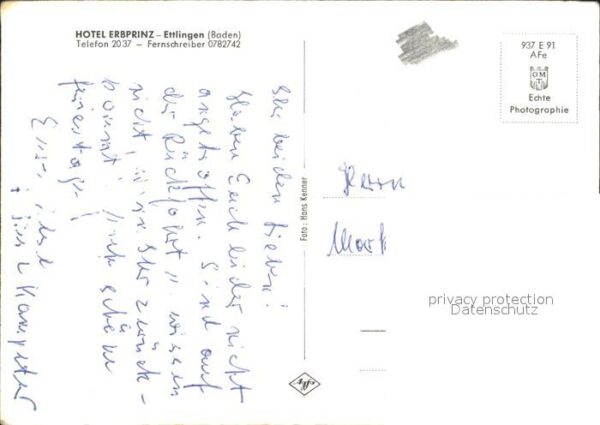 HOTEL ERBPRINZ – Ettlingen (Baden)
Telefon 2037 – Fernschreiber 0782742
937 E 91
AFe
Echte
Photographie
Ihr beiden Lieben!
Haben Euch leider nicht
angetroffen. Sind auf
der Rückfahrt u. wissen
nicht, wann Ihr zurück-
kommt. schöne
Feiertage!
Foto: Hans Kenner
Herrn
privacy protection
Datenschutz